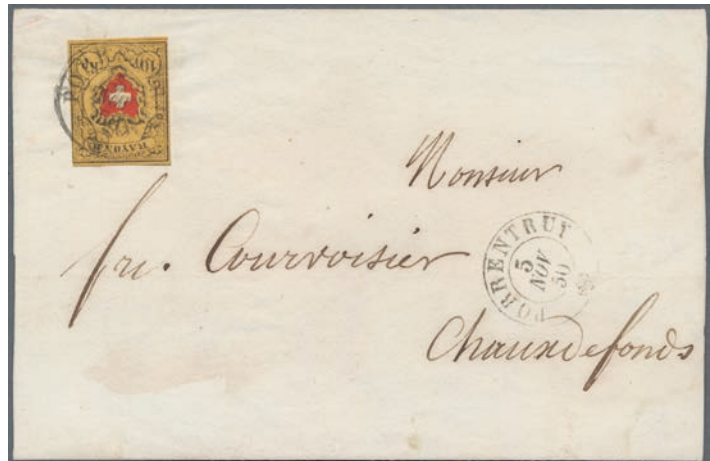 RAYON II
Monsieur
fr. Courvoisier
PORRENTRUY
5
NOV
50
Chauxdefonds